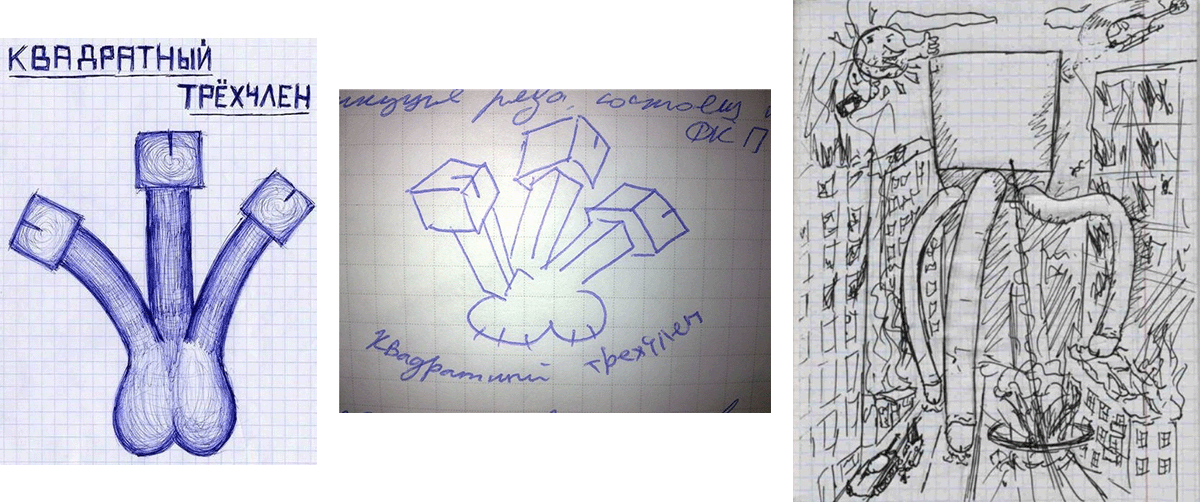 КВАДРАТНЫЙ
ТРЁХЧЛЕН
ряда, состоящ
ФКП
Квадратный трехчлен